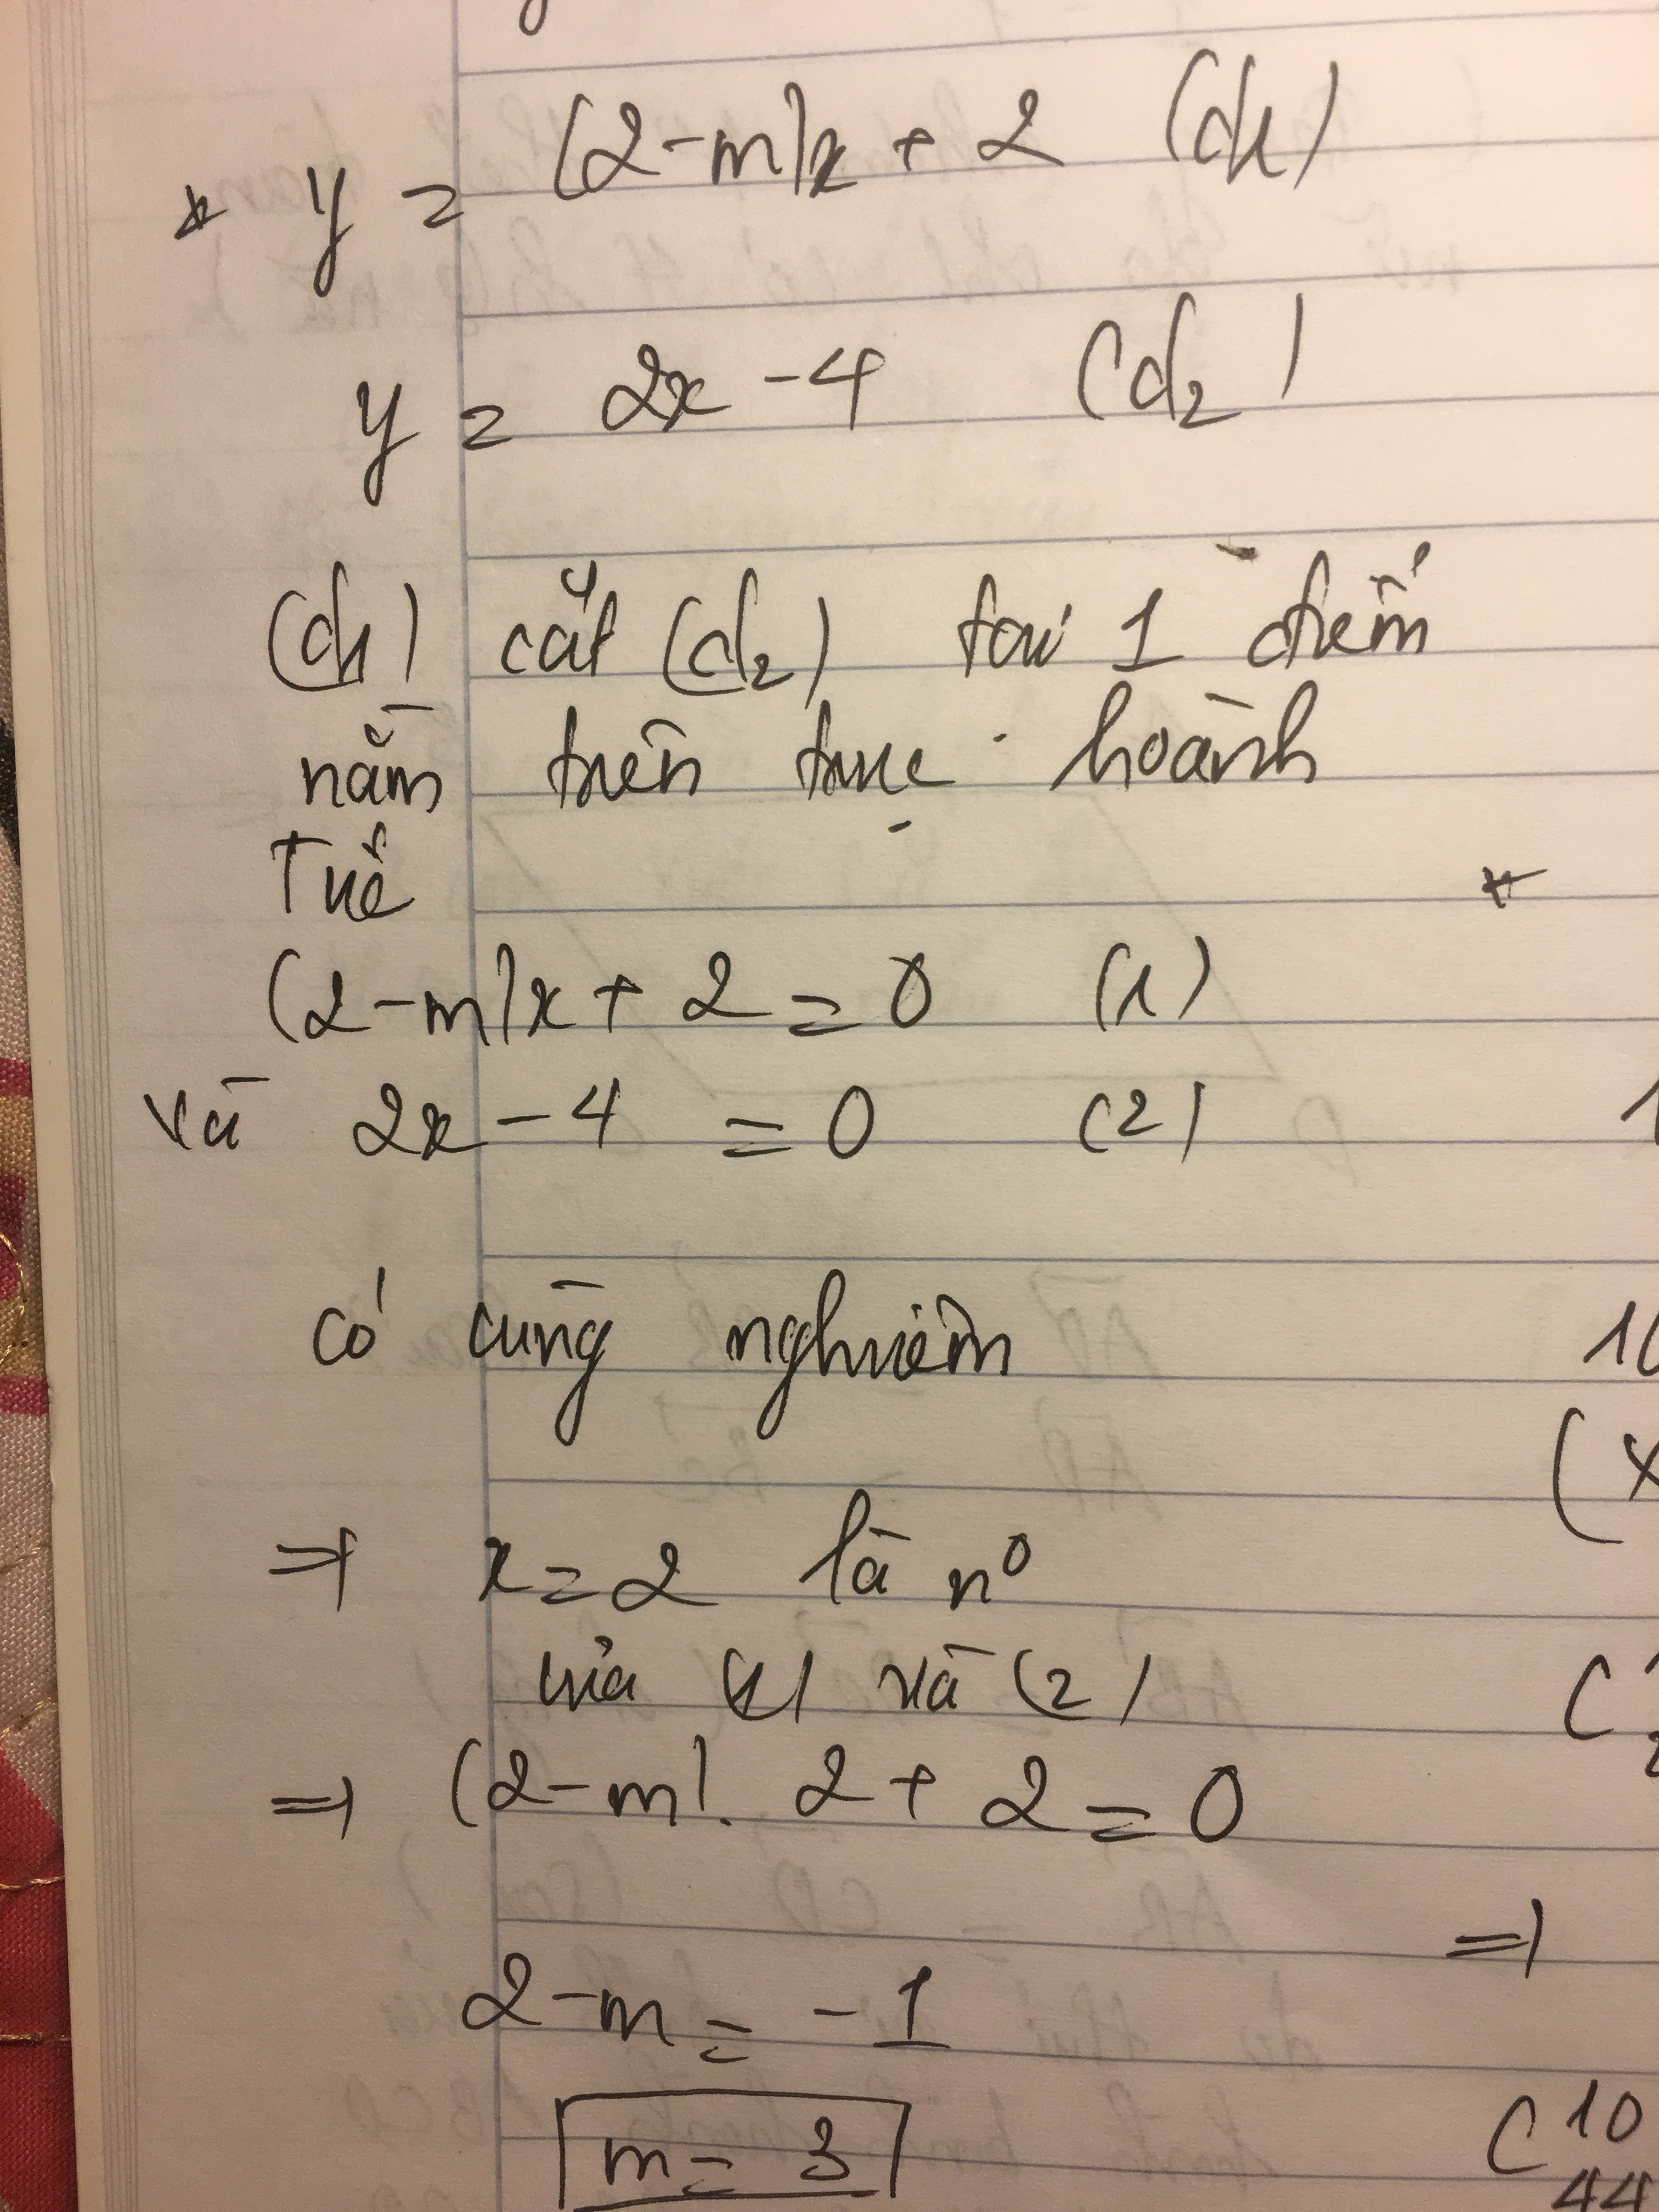 * y = (2-m)x + 2 (d1)
y = 2x - 4 (d2)
(d1) cắt (d2) tại 1 điểm
nằm trên trục hoành
(2-m)x + 2 = 0 (1)
và 2x - 4 = 0 (2)
có cùng nghiệm
⇒ x = 2 là n0
của (1) và (2)
⇒ (2-m). 2 + 2 = 0
2-m = -1
m = 3
*
10
(x
⇒
C 10
44